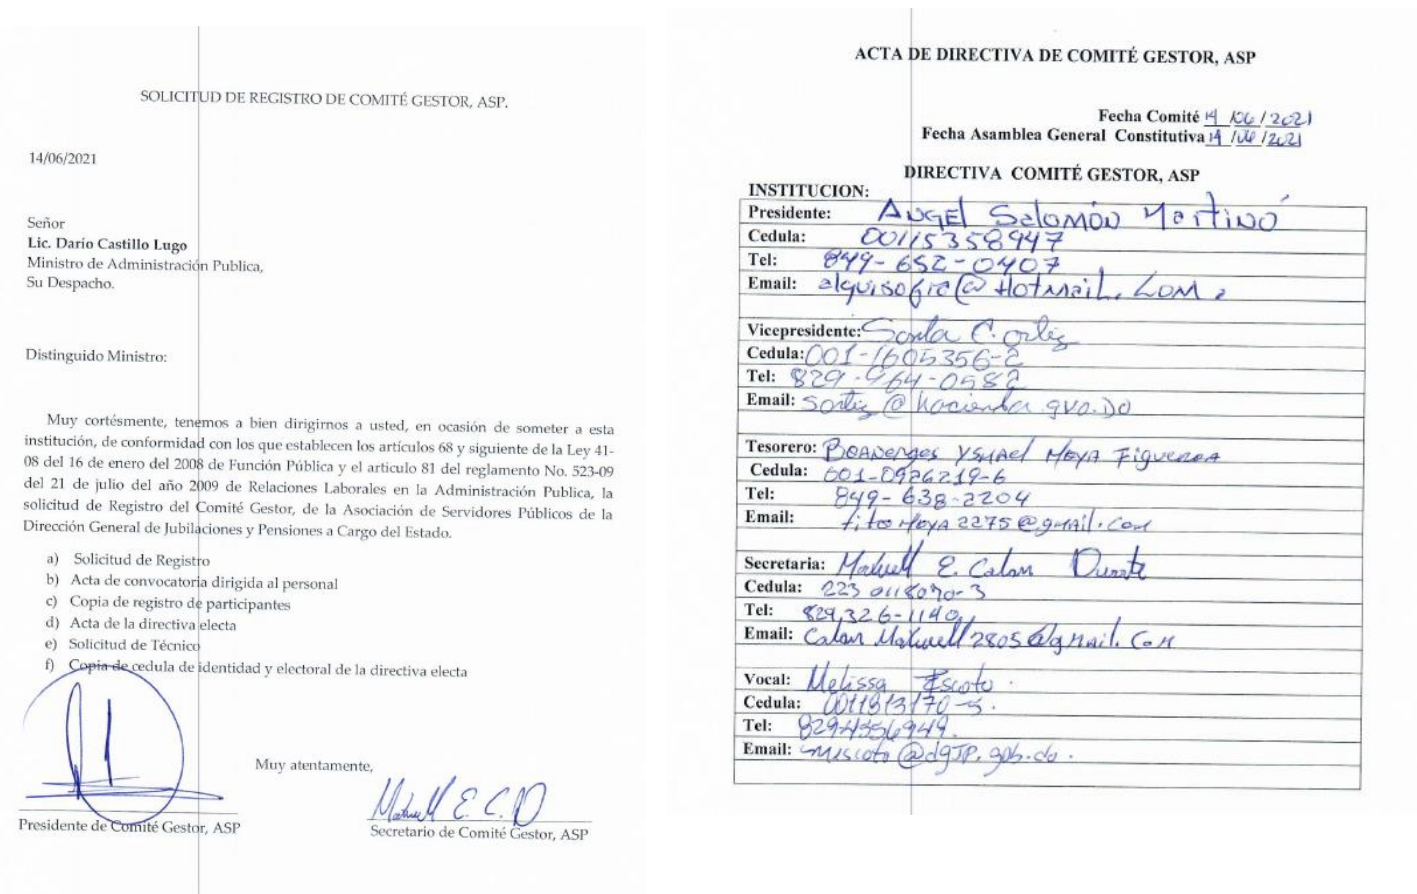 SOLICITUD DE REGISTRO DE COMITÉ GESTOR, ASP.
14/06/2021
Señor
Lic. Darío Castillo Lugo
Ministro de Administración Publica,
Su Despacho.
Distinguido Ministro:
Muy cortésmente, tenemos a bien dirigirnos a usted, en ocasión de someter a esta
institución, de conformidad con los que establecen los artículos 68 y siguiente de la Ley 41-
08 del 16 de enero del 2008 de Función Pública y el articulo 81 del reglamento No. 523-09
del 21 de julio del año 2009 de Relaciones Laborales en la Administración Publica, la
solicitud de Registro del Comité Gestor, de la Asociación de Servidores Públicos de la
Dirección General de Jubilaciones y Pensiones a Cargo del Estado.
a) Solicitud de Registro
b) Acta de convocatoria dirigida al personal
c) Copia de registro de participantes
d) Acta de la directiva electa
e) Solicitud de Técnico
f) Copia de cedula de identidad y electoral de la directiva electa
Muy atentamente,
Presidente de Comité Gestor, ASP
Secretario de Comité Gestor, ASP
ACTA DE DIRECTIVA DE COMITÉ GESTOR, ASP
Fecha Comité 14/06/2021
Fecha Asamblea General Constitutiva 14/06/2021
DIRECTIVA COMITÉ GESTOR, ASP
INSTITUCION:
Presidente: ANGEl Salomón Martínó
Cedula: 00115358947
Tel: 849-652-0407
Email: alquisofic@HOTMAIL.COM
Vicepresidente: Sonla C. ortiz
Cedula: 001-1605356-2
Tel: 829-964-0582
Email: Sortiz@hacienda gvo.DO
Tesorero: BOANERges YSMAel MOYA FigueROA
Cedula: 001-0926219-6
Tel: 849-638-2204
Email: titoMoya2275@gmail.com
Secretaria: E. Calan Duarte
Cedula: 223 0118070-3
Tel: 829,326-1140
Email: Calan Maxwell2805@gmail.Com
Vocal: Melissa Escoto.
Cedula: 0011813170-5.
Tel: 8294356949.
Email: mescoto@dgJP.gob.do.